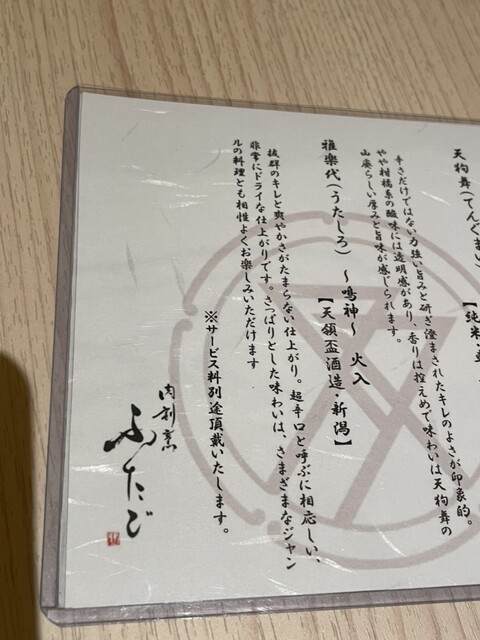 天狗舞(てんぐまい)
【純米・
辛さだけではない力強い旨みと研ぎ澄まされたキレのよさが印象的。
やや柑橘系の酸味には透明感があり、香りは控えめで味わいは天狗舞の
山廃らしい厚みと旨味が感じられます。
雅楽代(うたしろ) ～鳴神～ 火入
【天領盃酒造・新潟】
抜群のキレと爽やかさがたまらない仕上がり。超辛口と呼ぶに相応しい、
非常にドライな仕上がりです。さっぱりとした味わいは、さまざまなジャン
ルの料理とも相性よくお楽しみいただけます
※サービス料別途頂戴いたします。
肉割烹
ふたご